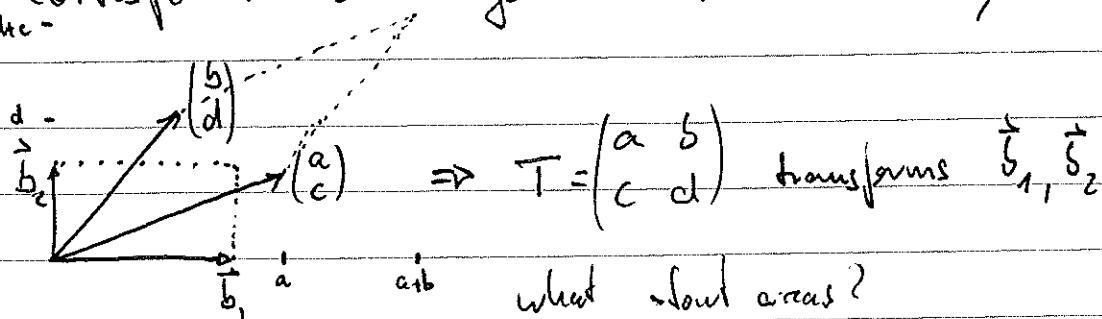 (b
d)
d -
b⃗₂ (a
c) ⇒ T = (a b
c d) transforms b⃗₁, b⃗₂
b⃗₁ a a+b what about areas?